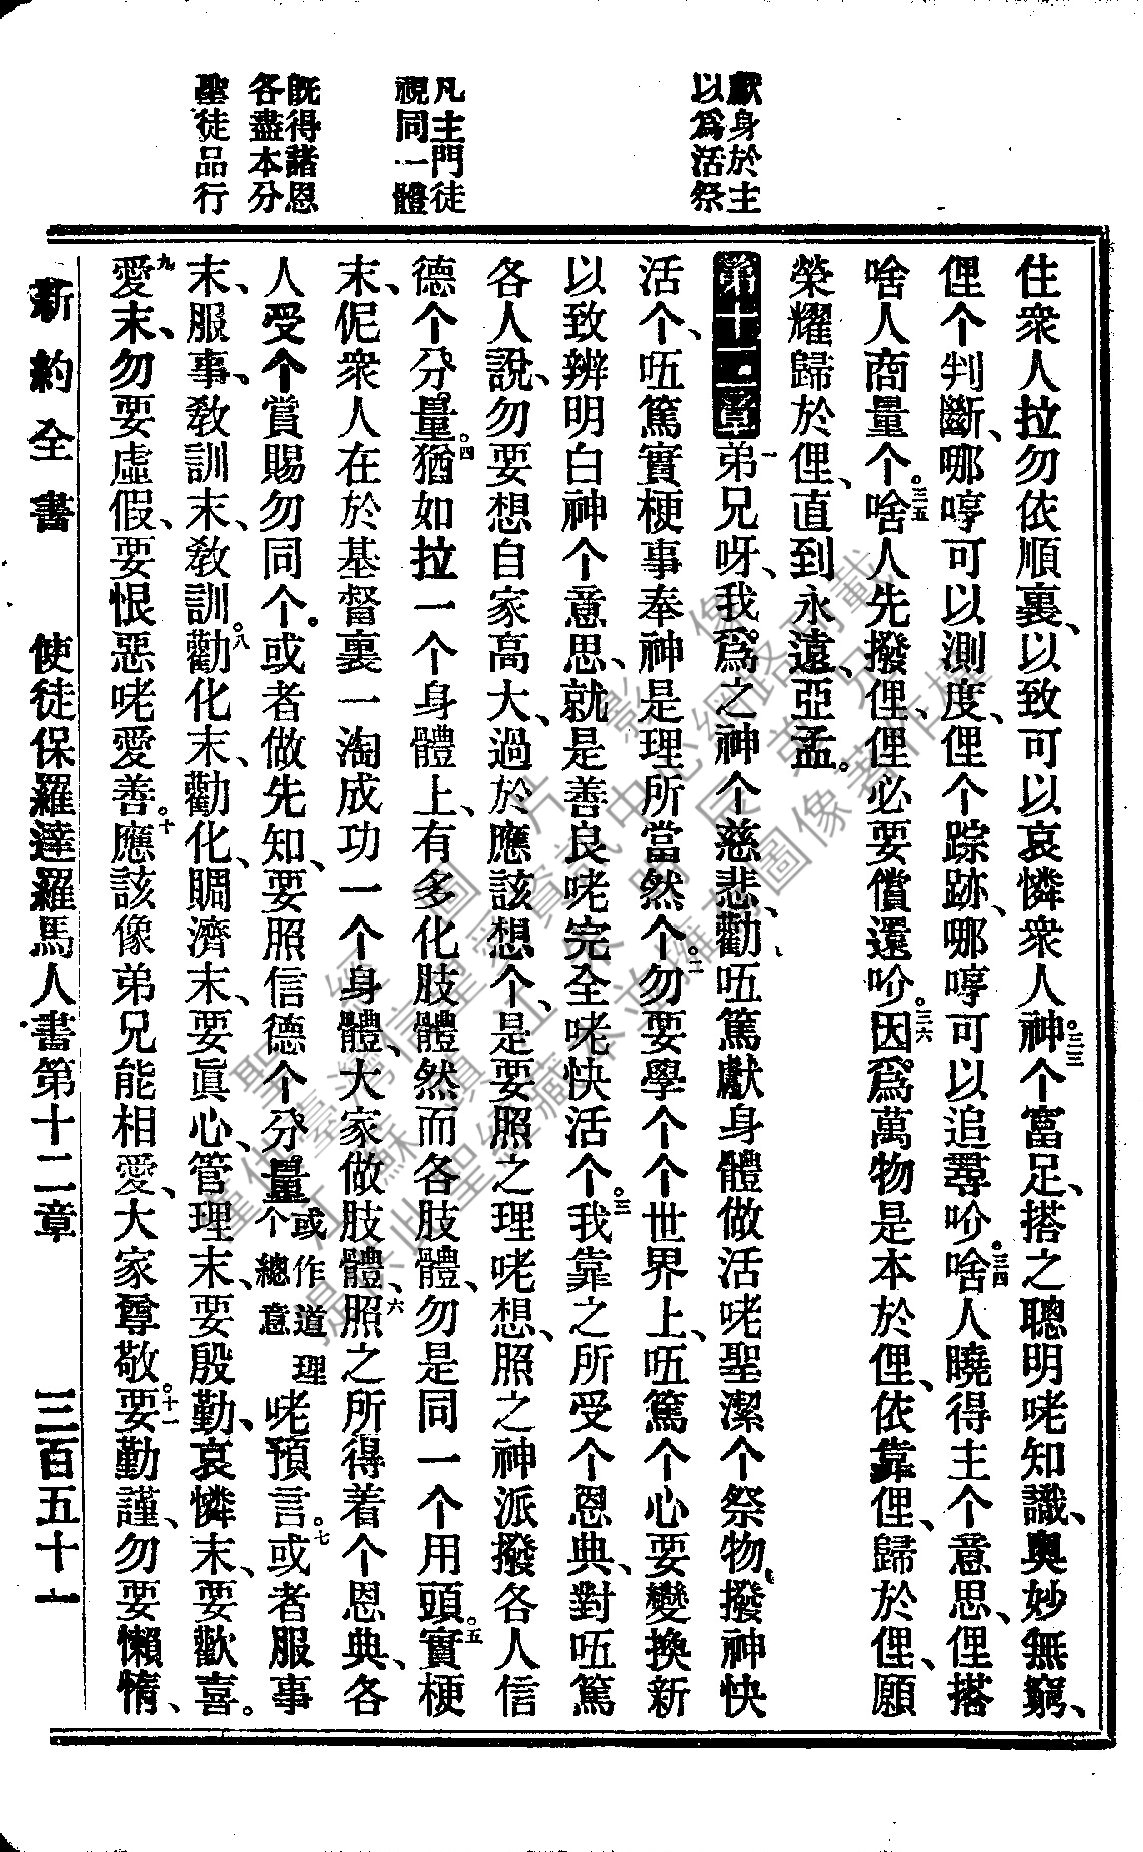 獻身於主
以爲活祭
凡主門徒
視同一體
旣得諸恩
各盡本分
聖徒品行
住衆人拉勿依順裏、以致可以哀憐衆人。三三神个富足、搭之聰明咾知識、奥妙無窮、
俚个判斷、哪哼可以測度、俚个踪跡、哪哼可以追尋吤。三四啥人曉得主个意思、俚搭
啥人商量个。三五啥人先撥俚、俚必要償還吤。三六因爲萬物是本於俚、依靠俚、歸於俚、願
榮耀歸於俚、直到永遠、亞孟。
第十二章 一弟兄呀、我爲之神个慈悲、勸㕶篤獻身體做活咾聖潔个祭物、撥神快
活个、㕶篤實梗事奉神是理所當然个。二勿要學个个世界上、㕶篤个心要變換新
以致辨明白神个意思、就是善良咾完全咾快活个。三我靠之所受个恩典、對㕶篤
各人說、勿要想自家高大、過於應該想个、是要照之理咾想、照之神派撥各人信
德个分量。四猶如拉一个身體上、有多化肢體然而各肢體、勿是同一个用頭。五實梗
末、伲衆人在於基督裏一淘成功一个身體、大家做肢體、六照之所得着个恩典、各
人受个賞賜勿同个。或者做先知、要照信德个分量或作道理个總意咾預言。七或者服事
末、服事、敎訓末、敎訓。八勸化末、勸化、賙濟末、要眞心、管理末、要殷勤、哀憐末、要歡喜。
九愛末、勿要虛假、要恨惡咾愛善。十應該像弟兄能相愛、大家尊敬。十一要勤謹、勿要懶惰、
新約全書 使徒保羅達羅馬人書第十二章 三百五十一